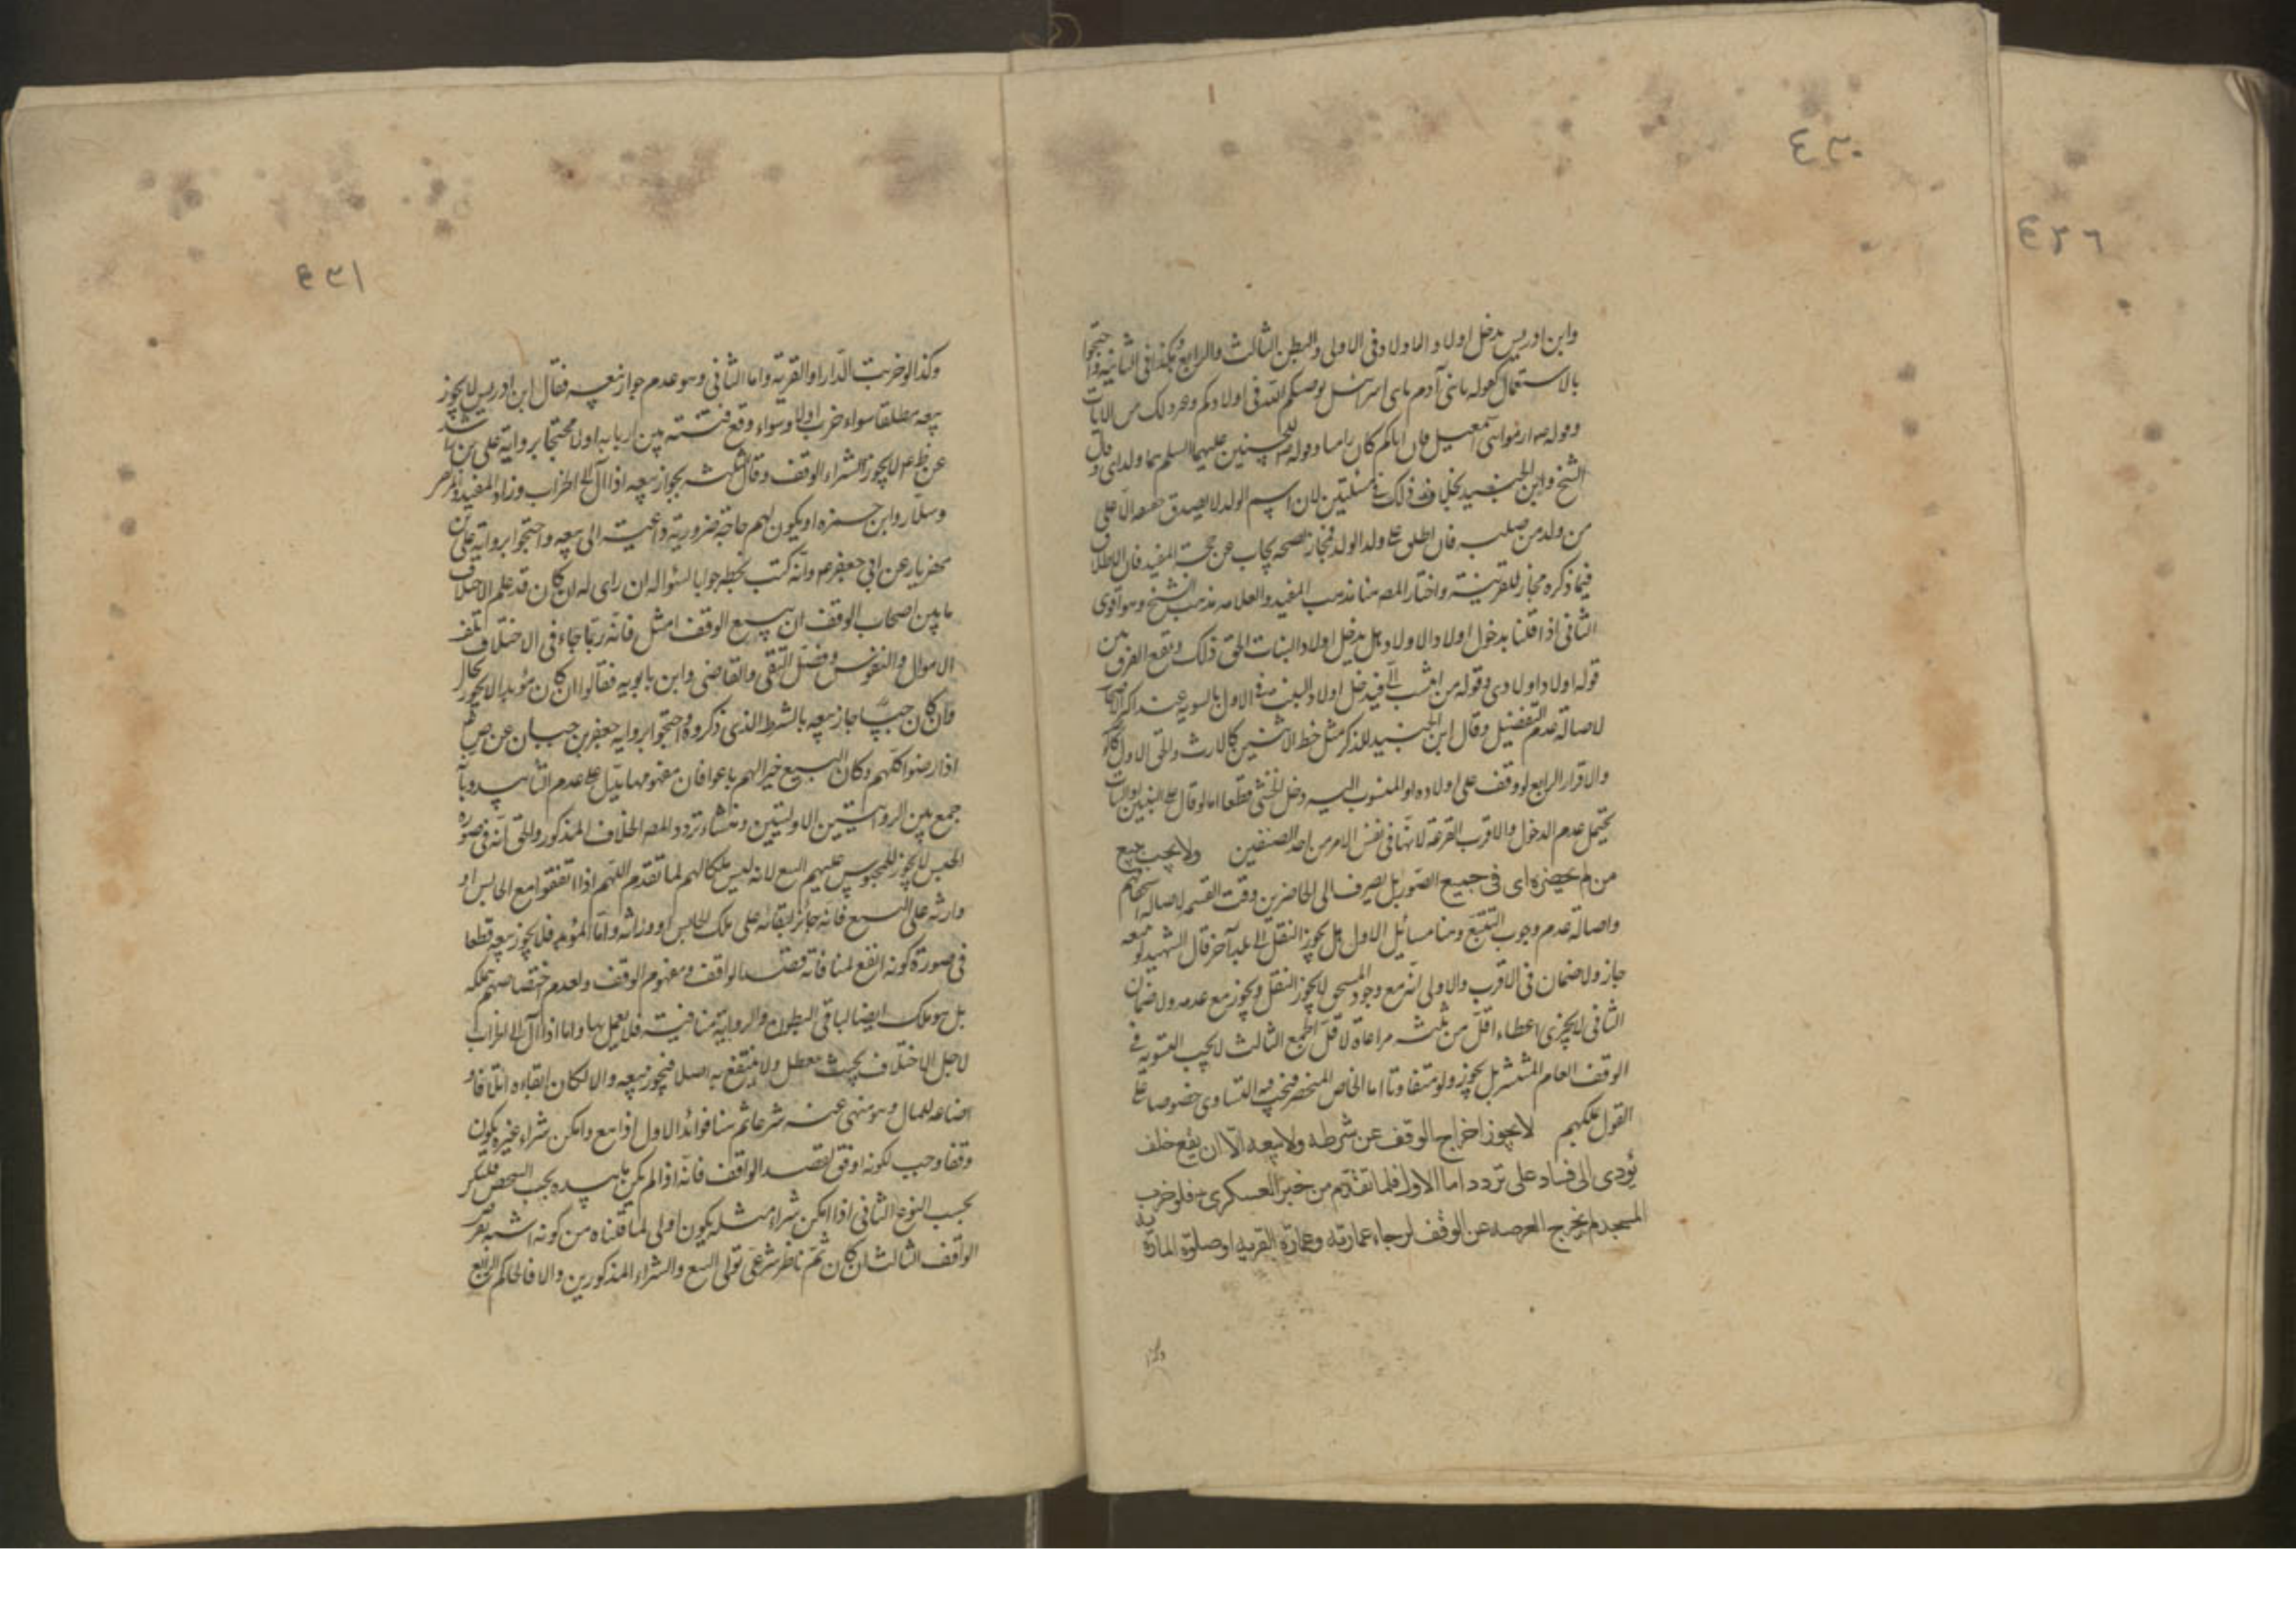 ٤٣٠
وابن ادريس يدخل اولاد الاولاد فى الاولى والبطن الثالث والرابع وهكذا فى الثانية واحتجوا
بالاستعمال كقوله يا بنى آدم يا بنى اسرائيل يوصيكم الله فى اولادكم وغير ذلك من الايات
وقوله ص ارموا بنى اسمعيل فان اباكم كان راميا وقوله ص للحسنين عليهما السلم هما ولداى وقال
الشيخ وابن الجنيد بخلاف ذلك فى المسئلتين لان اسم الولد لا يصدق حقيقة الا على
من ولد من صلبه فان اطلق على ولد الولد فمجاز لصحة يجاب عن حجة المفيد فان الاطلاق
فيما ذكره مجاز للقرينة واختار المصه هنا مذهب المفيد والعلامه مذهب الشيخ وهو اقوى
الثانى اذا قلنا بدخول اولاد الاولاد هل يدخل اولاد البنات الحق ذلك ويقع الفرق بين
قوله اولاد اولادى وقوله من انتسب الى فيدخل اولاد البنت فى الاول بالسوية عند اكثر الاصحاب
لاصالة عدم التفضيل وقال ابن الجنيد للذكر مثل حظ الانثيين كالارث والحق الاول كالو
والاقرار الرابع لو وقف على اولاده او المنسوب اليه دخل الخنثى قطعا اما لو قال على البنين او البنات
يحتمل عدم الدخول والاقرب القرعة لانها فى نفس الامر من احد الصنفين ولا يجب جميع
من لم يحضره اى فى جميع الصور بل يصرف الى الحاضرين وقت القسمه لاصالة
واصالة عدم وجوب التتبع وهنا مسائل الاول هل يجوز النقل الى بلد آخر قال الشهيد لو
جاز ولا ضمان فى الاقرب والاولى انه مع وجود المستحق لا يجوز النقل ويجوز مع عدمه ولا ضمان
الثانى لا يجزى اعطاء اقل من ثلثه مراعاة لاقل الجمع الثالث لا يجب التسوية فى
الوقف العام المنتشر بل يجوز ولو متفاوتا اما الخاص المنحصر فيجب فيه التساوى خصوصا على
القول بملكهم لا يجوز اخراج الوقف عن شرطه ولا بيعه الا ان يقع خلف
يؤدى الى فساد على تردد اما الاول فلما تقدم من خبر العسكرى ع فلو خرب
المسجد لم يخرج العرصه عن الوقف لرجاء عمارته وعمارة القريه او صلوة المارة به
وكذا
٤٣١
وكذا لو خربت الدار او القرية واما الثانى وهو عدم جواز بيعه فقال ابن ادريس لا يجوز
بيعه مطلقا سواء خرب اولا وسواء وقع فتنه بين اربابه اولا محتجا برواية على بن راشد
عن ع لا يجوز شراء الوقف وقال الثلثه بجواز بيعه اذا آل الى الخراب وزاد المفيد والمرتضى
وسلار وابن حمزه او يكون لهم حاجة ضرورية داعية الى بيعه واحتجوا برواية على بن
مهزيار عن ابى جعفر ع وانه كتب بخطه جوابا لسؤاله ان راى له ان كان قد علم الاختلاف
ما بين اصحاب الوقف ان بيع الوقف امثل فانه ربما جاء فى الاختلاف تلف
الاموال والنفوس وفصل التقى والقاضى وابن بابويه فقالوا ان كان مؤبدا لا يجوز بحال
وان كان حبسا جاز بيعه بالشرط الذى ذكروه واحتجوا برواية جعفر بن حنان عن ص
اذا رضوا كلهم وكان البيع خيرا لهم باعوا فان مفهومها يدل على عدم التأبيد وبأنه
جمع بين الروايتين الاولتين ومنشاء تردد المصه الخلاف المذكور والحق انه فى صورة
الحبس لا يجوز للمحبوس عليهم البيع لانه ليس ملكا لهم لما تقدم اللهم اذا اتفقوا مع الحابس او
وارثه على البيع فانه جائز لبقائه على ملك الحابس او ورثته واما المؤبد فلا يجوز بيعه قطعا
فى صورة كونه انفع لمنافاته قصد الواقف ومفهوم الوقف ولعدم اختصاصهم بملكه
بل هو ملك ايضا لباقى البطون والرواية منافية فلا يعمل بها واما اذا آل الى الخراب
لاجل الاختلاف بحيث يعطل ولا ينتفع به اصلا فيجوز بيعه والا لكان ابقاءه اتلافا و
اضاعه للمال وهو منهى عنه شرعا ثم هنا فوائد الاول اذا بيع وامكن شراء غيره يكون
وقفا وجب لكونه اوفق لقصد الواقف فانه اذا لم يكن تابيده بحسب الشخص فليكن
بحسب النوع الثانى اذا امكن شراء مثله يكون اولى لما قلناه من كونه اشبه بغرض
الواقف الثالث ان كان ثم ناظر شرعى تولى البيع والشراء المذكورين والا فالحاكم الرابع
٤٢٦